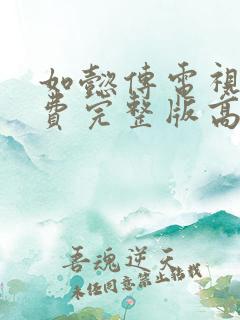 如懿傳電視
費完整版高
吾魂逆天
未经同意禁止转载